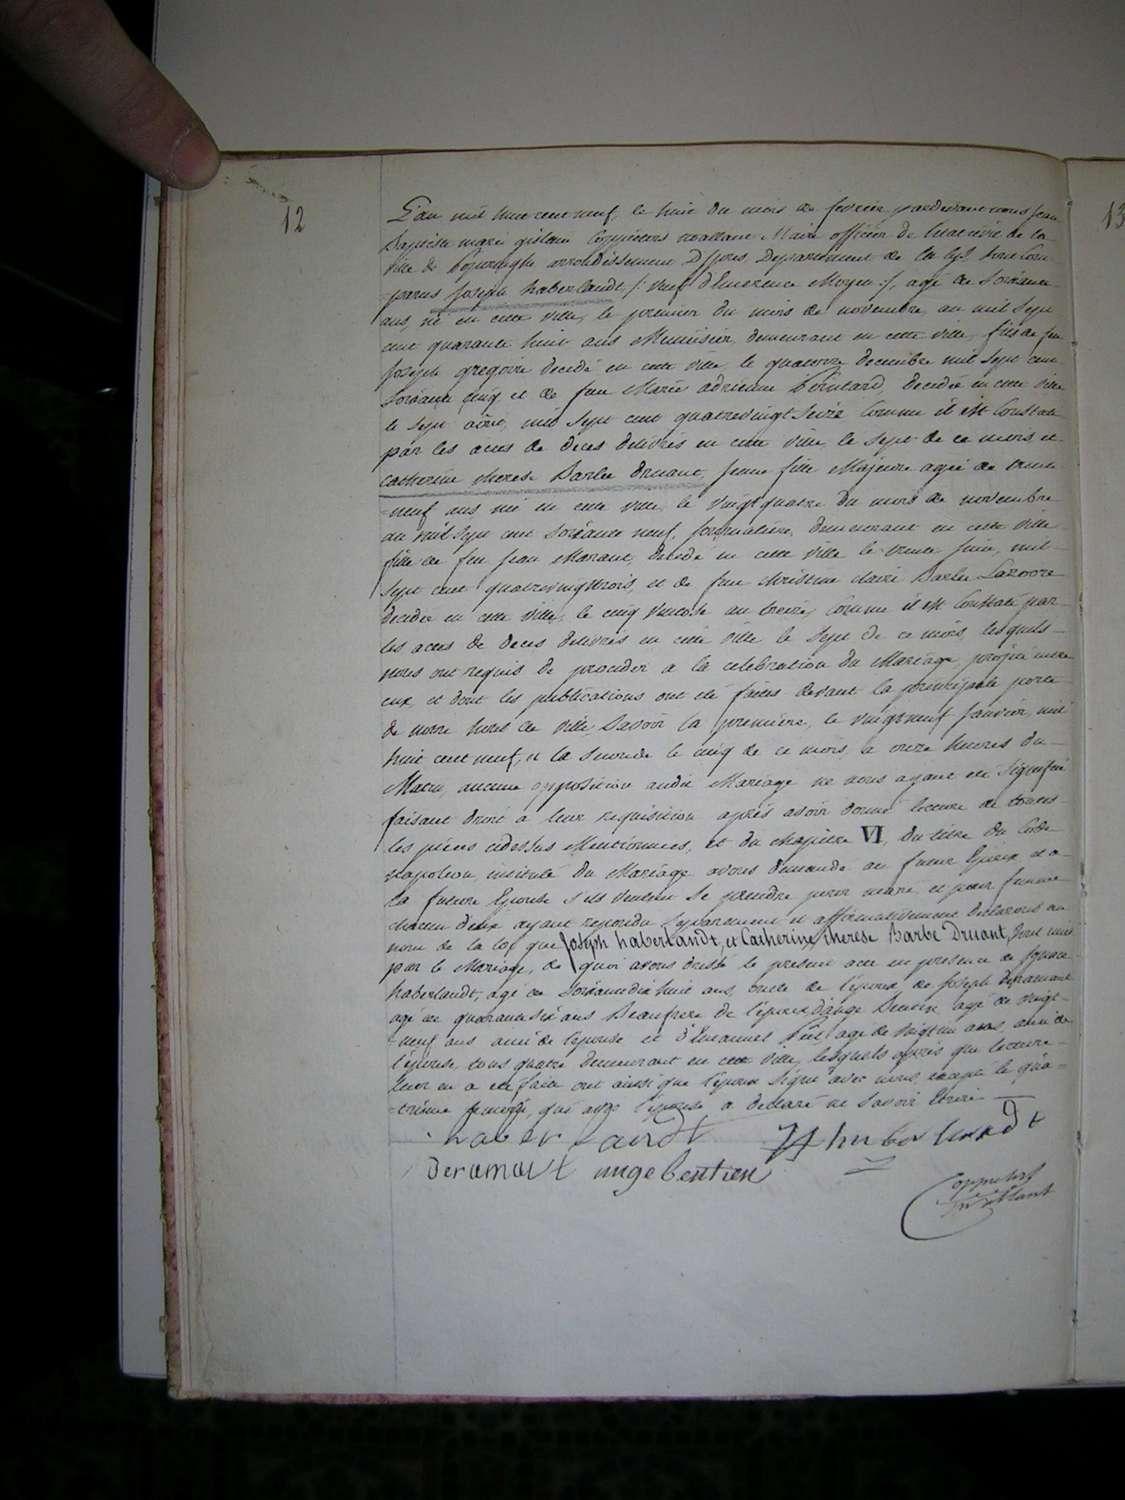 12
13
L'an mil huit cent neuf, le huit du mois de fevrier pardevant nous Jean
Baptiste marie gislain Coppietens wallant Maire officier de l'etat civil de la
ville de Poperinghe arrondissement D'Ypres Departement de la Lys sont Com-
parus Joseph haberlandt /: veuf d'Emerence :/, agé de Soixante
ans, né en cette ville, le premier du mois de novembre, an mil Sept
cent quarante huit ans Menuisier, demeurant en cette ville, fils de feu
Joseph gregoire decedé en cette ville le quatorze decembre mil Sept cent
Soixante cinq et de feue Marie adrienne decedée en cette ville
le Sept mil Sept cent quatrevingt Seize Comme il est Constaté
par les actes de deces delivrés en cette ville, le Sept de ce mois, et
catherine therese Barbe druant, Jeune fille Majeure agée de trente
neuf ans née en cette ville, le vingt quatre du mois de novembre
an mil Sept cent Soixante neuf, demeurant en cette ville
fille de feu Jean decedé en cette ville le trente Juin, mil
Sept cent quatrevingttrois, et de feue christine claire Barbe
decedée en cette ville, le cinq ventose an treize, Comme il est Constaté par
les actes de deces delivrés en cette ville le Sept de ce mois, lesquels
nous ont requis de proceder a la celebration du Mariage projetté entre
eux, et dont les publications ont été faites devant la principale porte
de notre hotel de ville Savoir la premiere, le vingtneuf Janvier, mil
huit cent neuf, et la Seconde le cinq de ce mois, a onze heures du
Matin, aucune opposition audit Mariage ne nous ayant été Signifié
faisant droit a leur requisition après avoir donné lecture de toutes
les pièces cidessus Mentionnées, et du chapitre VI, du titre du Code
napoleon, intitulé du Mariage avons demandé au futur Epoux et a
la future Epouse s'ils veulent Se prendre pour mari et pour femme
chacun d'eux ayant repondu Separement et affirmativement declarons au
nom de la loi que Joseph haberlandt, et Catherine therese Barbe Druant, Sont unis
par le Mariage, de quoi avons dressé le present acte en presence de
haberlandt, agé de Soixantedixhuit ans, de l'époux, de Joseph Deramaut
agé de quarante six ans Beaufrere de l'époux, d'ange Bentien agé de vingt-
neuf ans ami de l'epouse et d'Emanuel agé de ans, ami de
l'épouse, tous quatre demeurant en cette ville, lesquels après que lecture
leur en a été faite ont ainsi que l'époux Signé avec nous, excepté le qua-
trieme temoin, qui avec l'épouse a declaré ne Savoir Ecrire
haberlandt haberlandt
Deramaut ange bentien